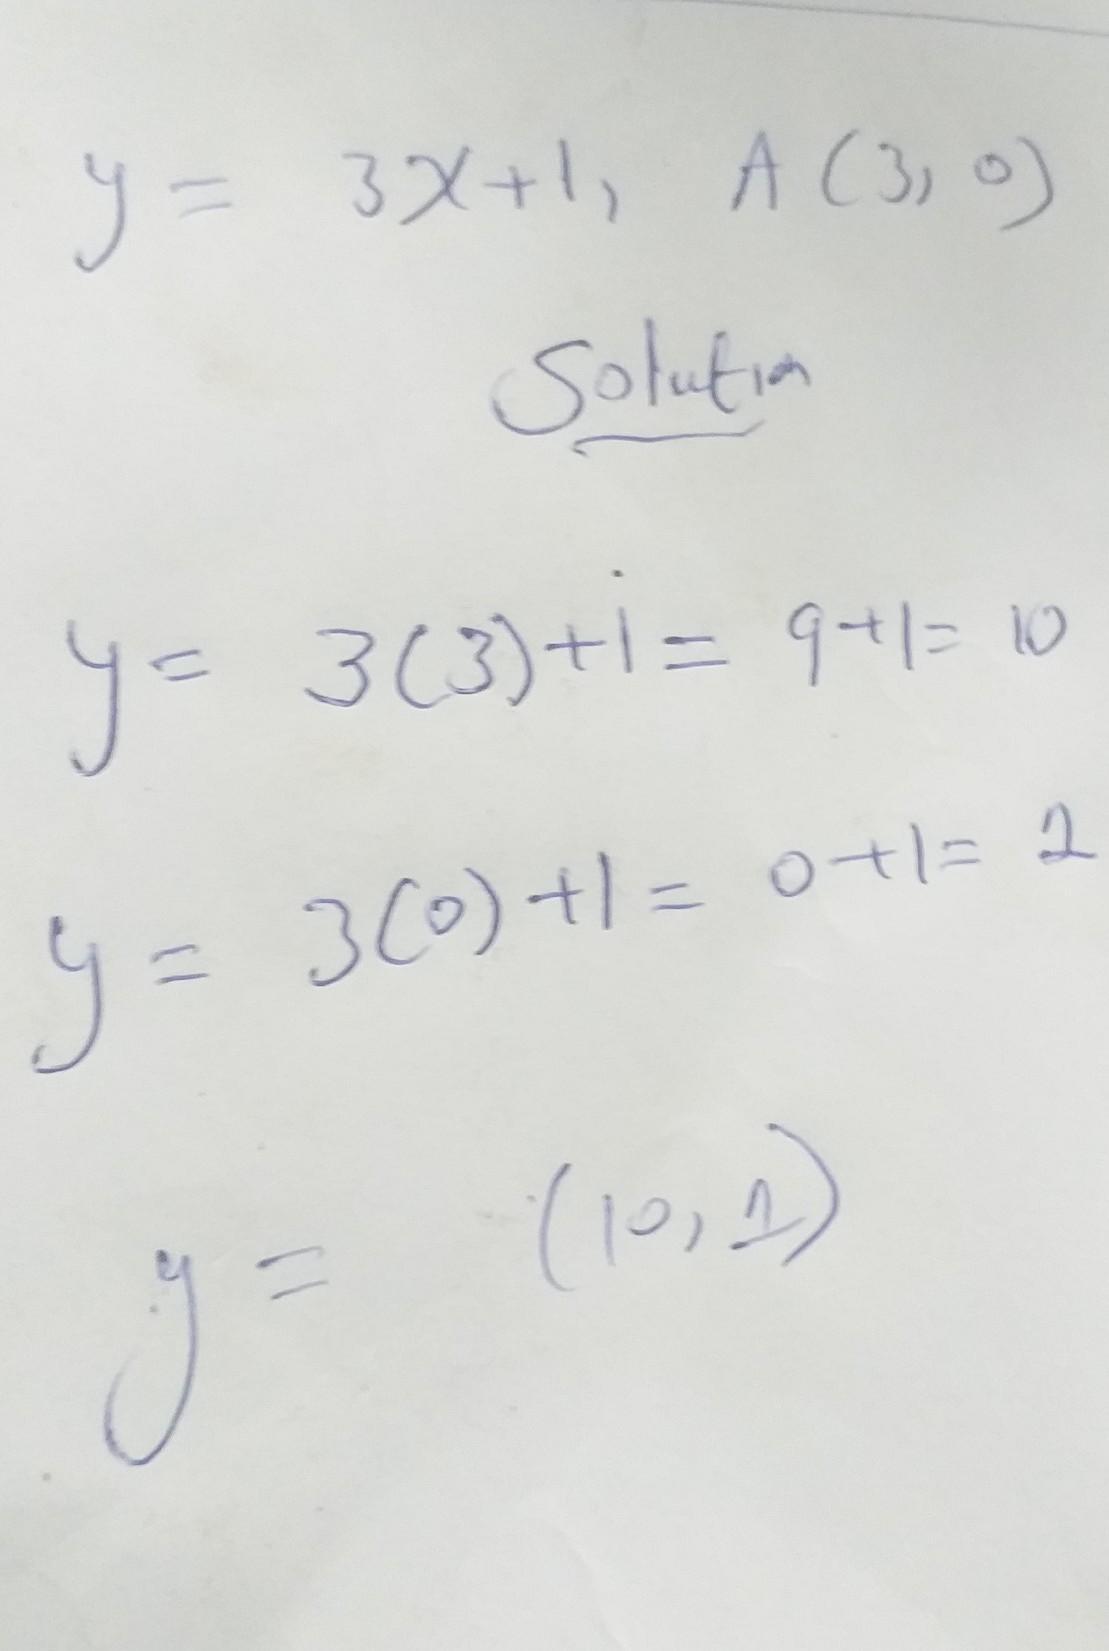 y = 3x+1, A(3, 0)
Solution
y = 3(3)+1 = 9+1 = 10
y = 3(0)+1 = 0+1 = 2
y = (10, 1)